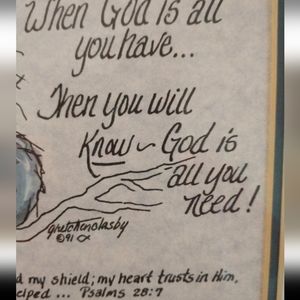 When God is all
you have...
Then you will
Know ~ God is
all you
need!
gretchenolasby
©91
my shield; my heart trusts in Him,
... Psalms 28:7